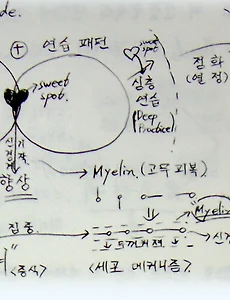 de.
+ 연습 패턴
sweet spot
점화
(열정)
sweet
spot.
심층
연습
(Deep
Practice)
기작
신경계
향상
Myelin. (고무 피복)
"Myelin
집중
두꺼워짐
신경
<세포 메커니즘>